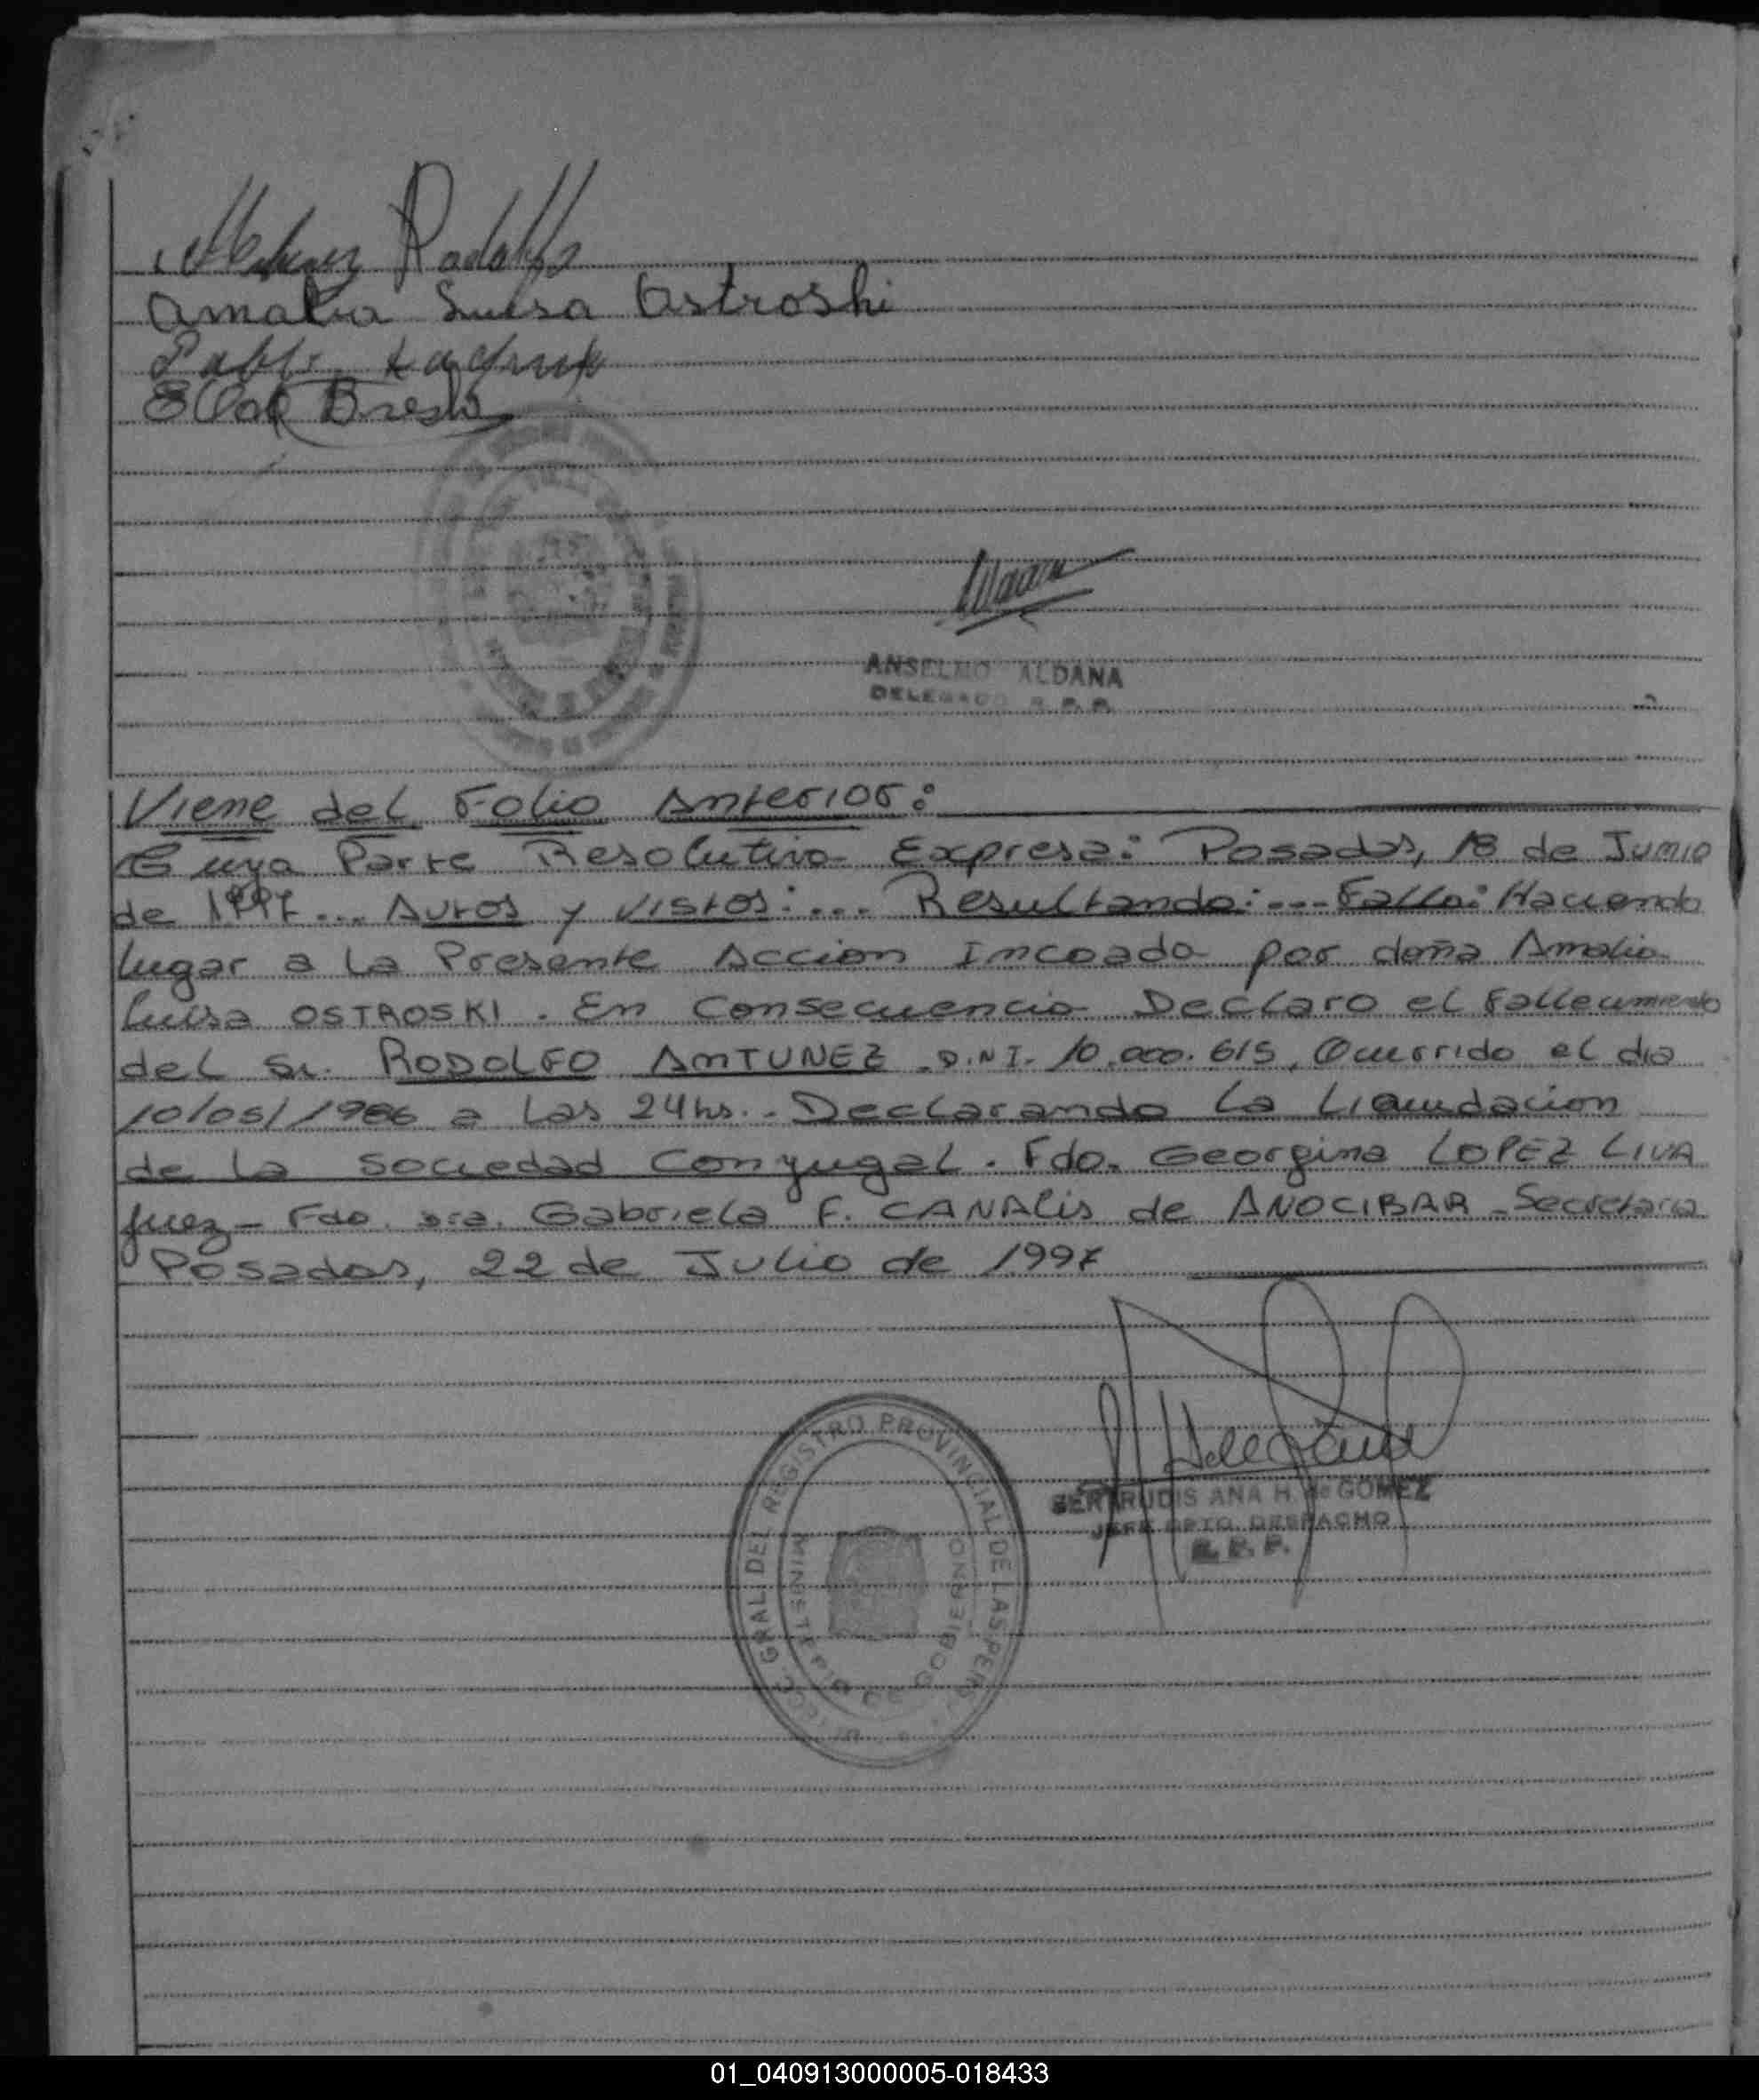 Antunez Rodolfo
Amalia Luisa Ostroski
Pablo
ANSELMO ALDANA
DELEGADO R. P. P.
Viene del Folio Anterior:
Cuya Parte Resolutiva Expresa: Posadas, 18 de Junio
de 1997... Autos y Vistos:... Resultando:... Fallo: Haciendo
lugar a la Presente Accion Incoada por doña Amalia
Luisa OSTROSKI. En Consecuencia Declaro el Fallecimiento
del Sr. RODOLFO ANTUNEZ - D.N.I. 10.000.615, Ocurrido el dia
10/05/1986 a las 24hs.. Declarando la Liquidacion
de la Sociedad Conyugal. Fdo. Georgina LOPEZ LIVA
Juez - Fdo. Dra. Gabriela F. CANALis de ANOCIBAR - Secretaria
Posadas, 22 de Julio de 1997
GERTRUDIS ANA H. de GOMEZ
JEFE DPTO. DESPACHO
R. P. P.
GRAL DEL REGISTRO PROVINCIAL DE LAS PERS.
MINISTERIO DE GOBIERNO
01_040913000005-018433